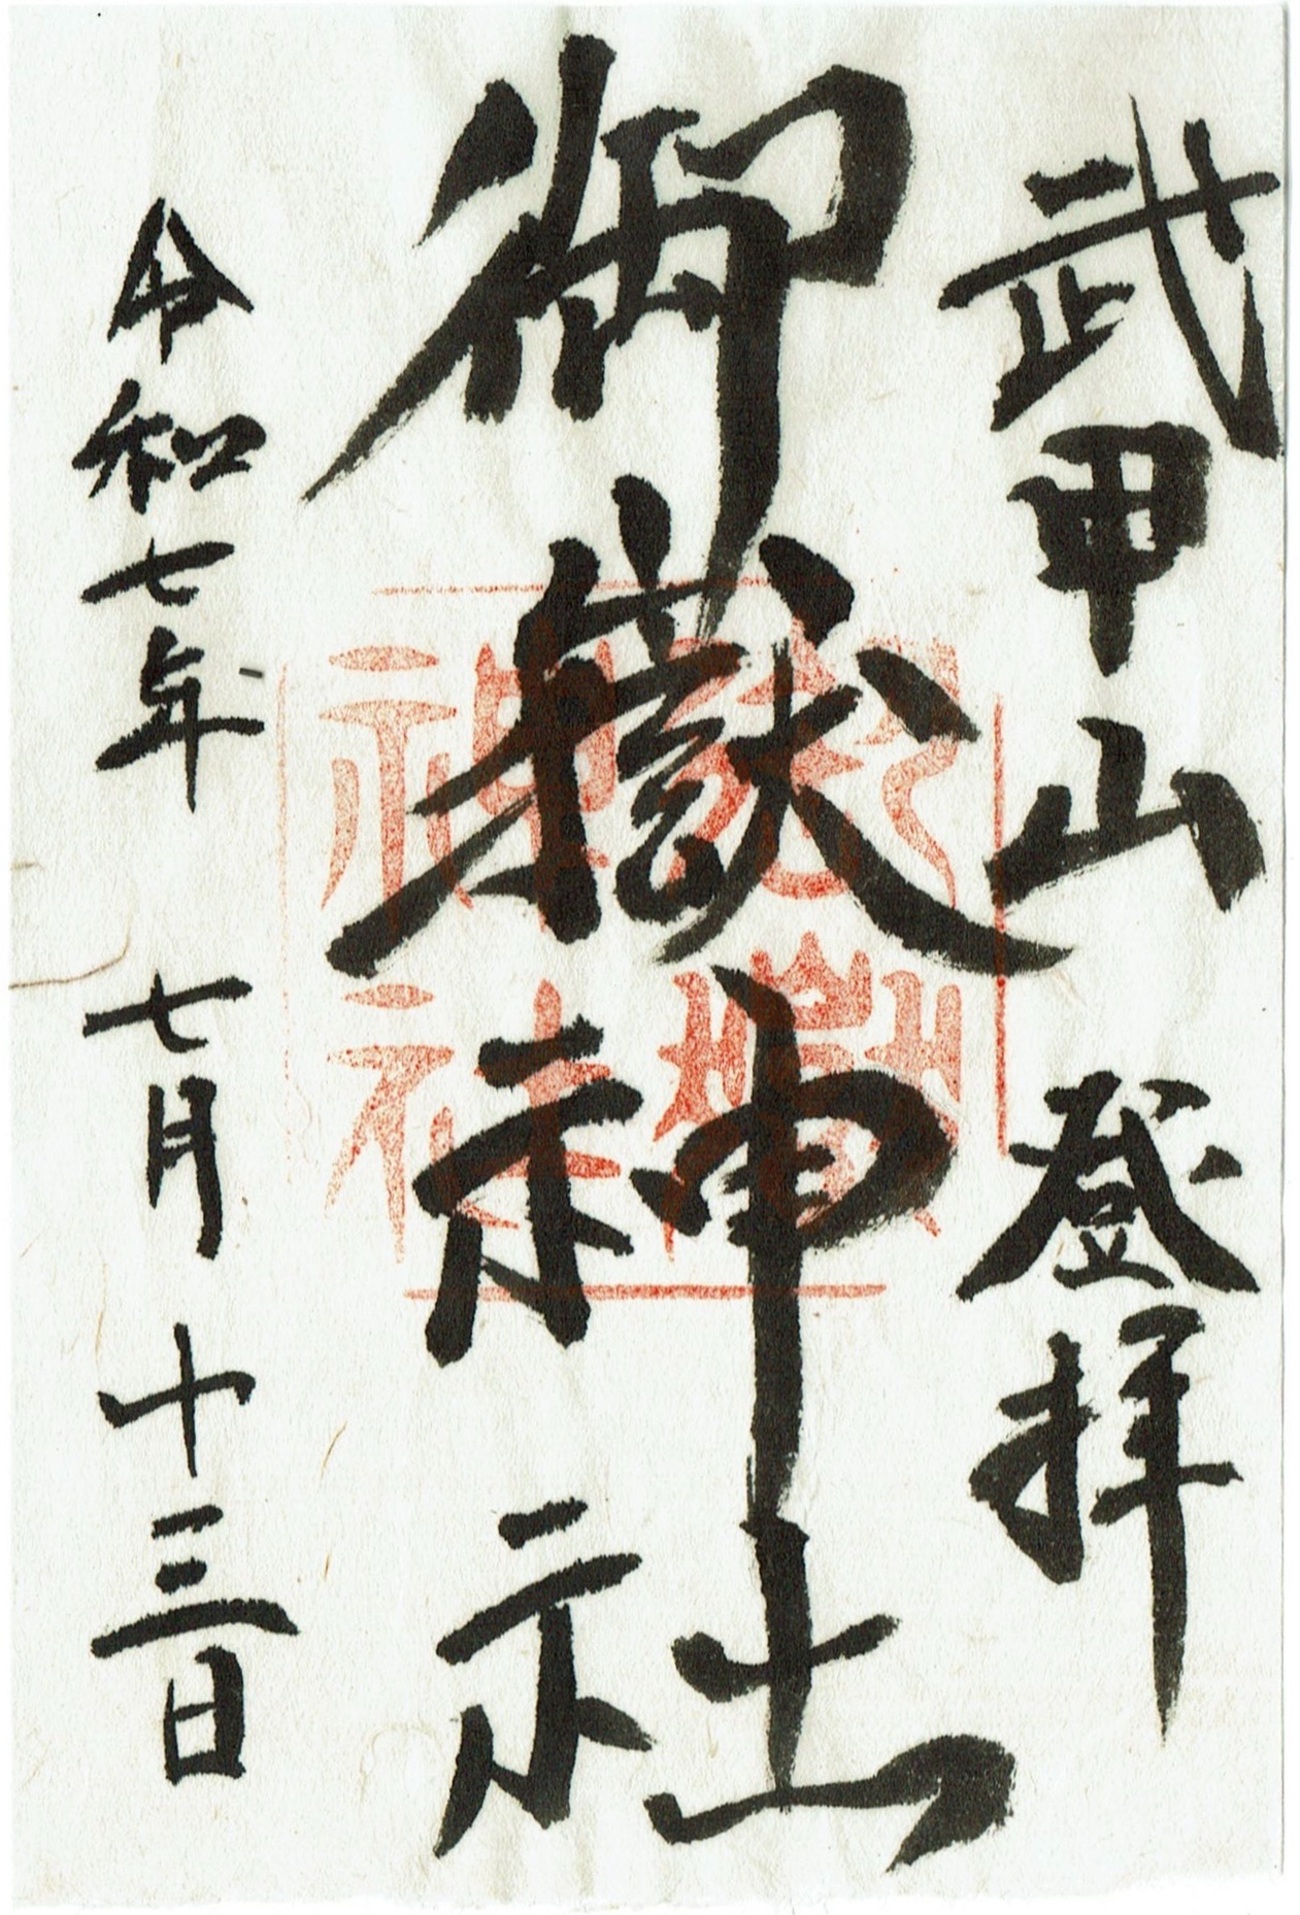 武甲山 登拝
御嶽神社
令和七年 七月 十三日